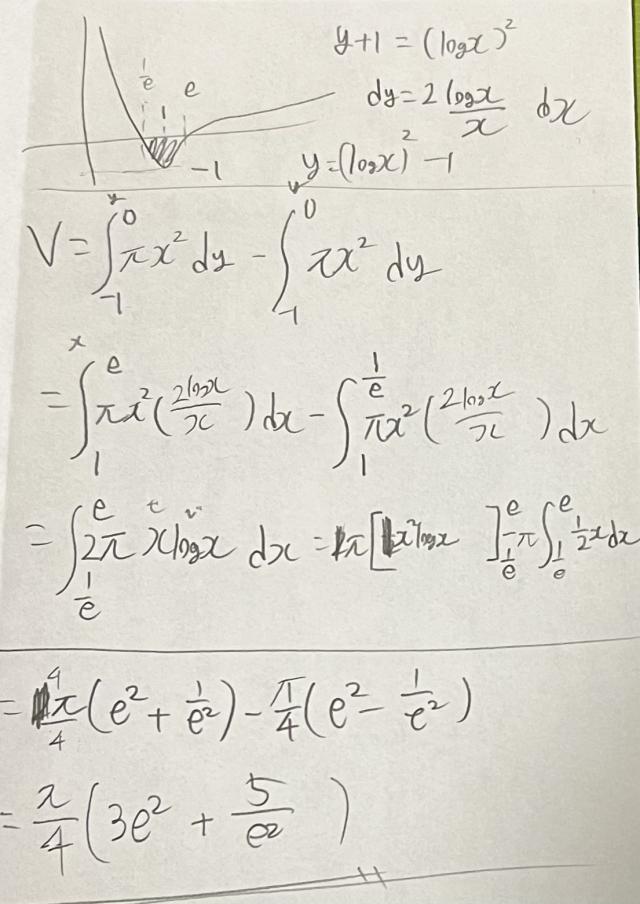 y+1 = (log x)²
1/e 1 e
dy = 2 log x / x dx
-1
y = (log x)² - 1
V = ∫_{-1}^{0} πx² dy - ∫_{-1}^{0} πx² dy
x
= ∫_{1}^{e} πx² (2 log x / x) dx - ∫_{1}^{1/e} πx² (2 log x / x) dx
= ∫_{1/e}^{e} 2π x log x dx = π [x² log x]_{1/e}^{e} - π ∫_{1/e}^{e} 1/2 x dx
= 4π/4 (e² + 1/e²) - π/4 (e² - 1/e²)
= π/4 (3e² + 5/e²)